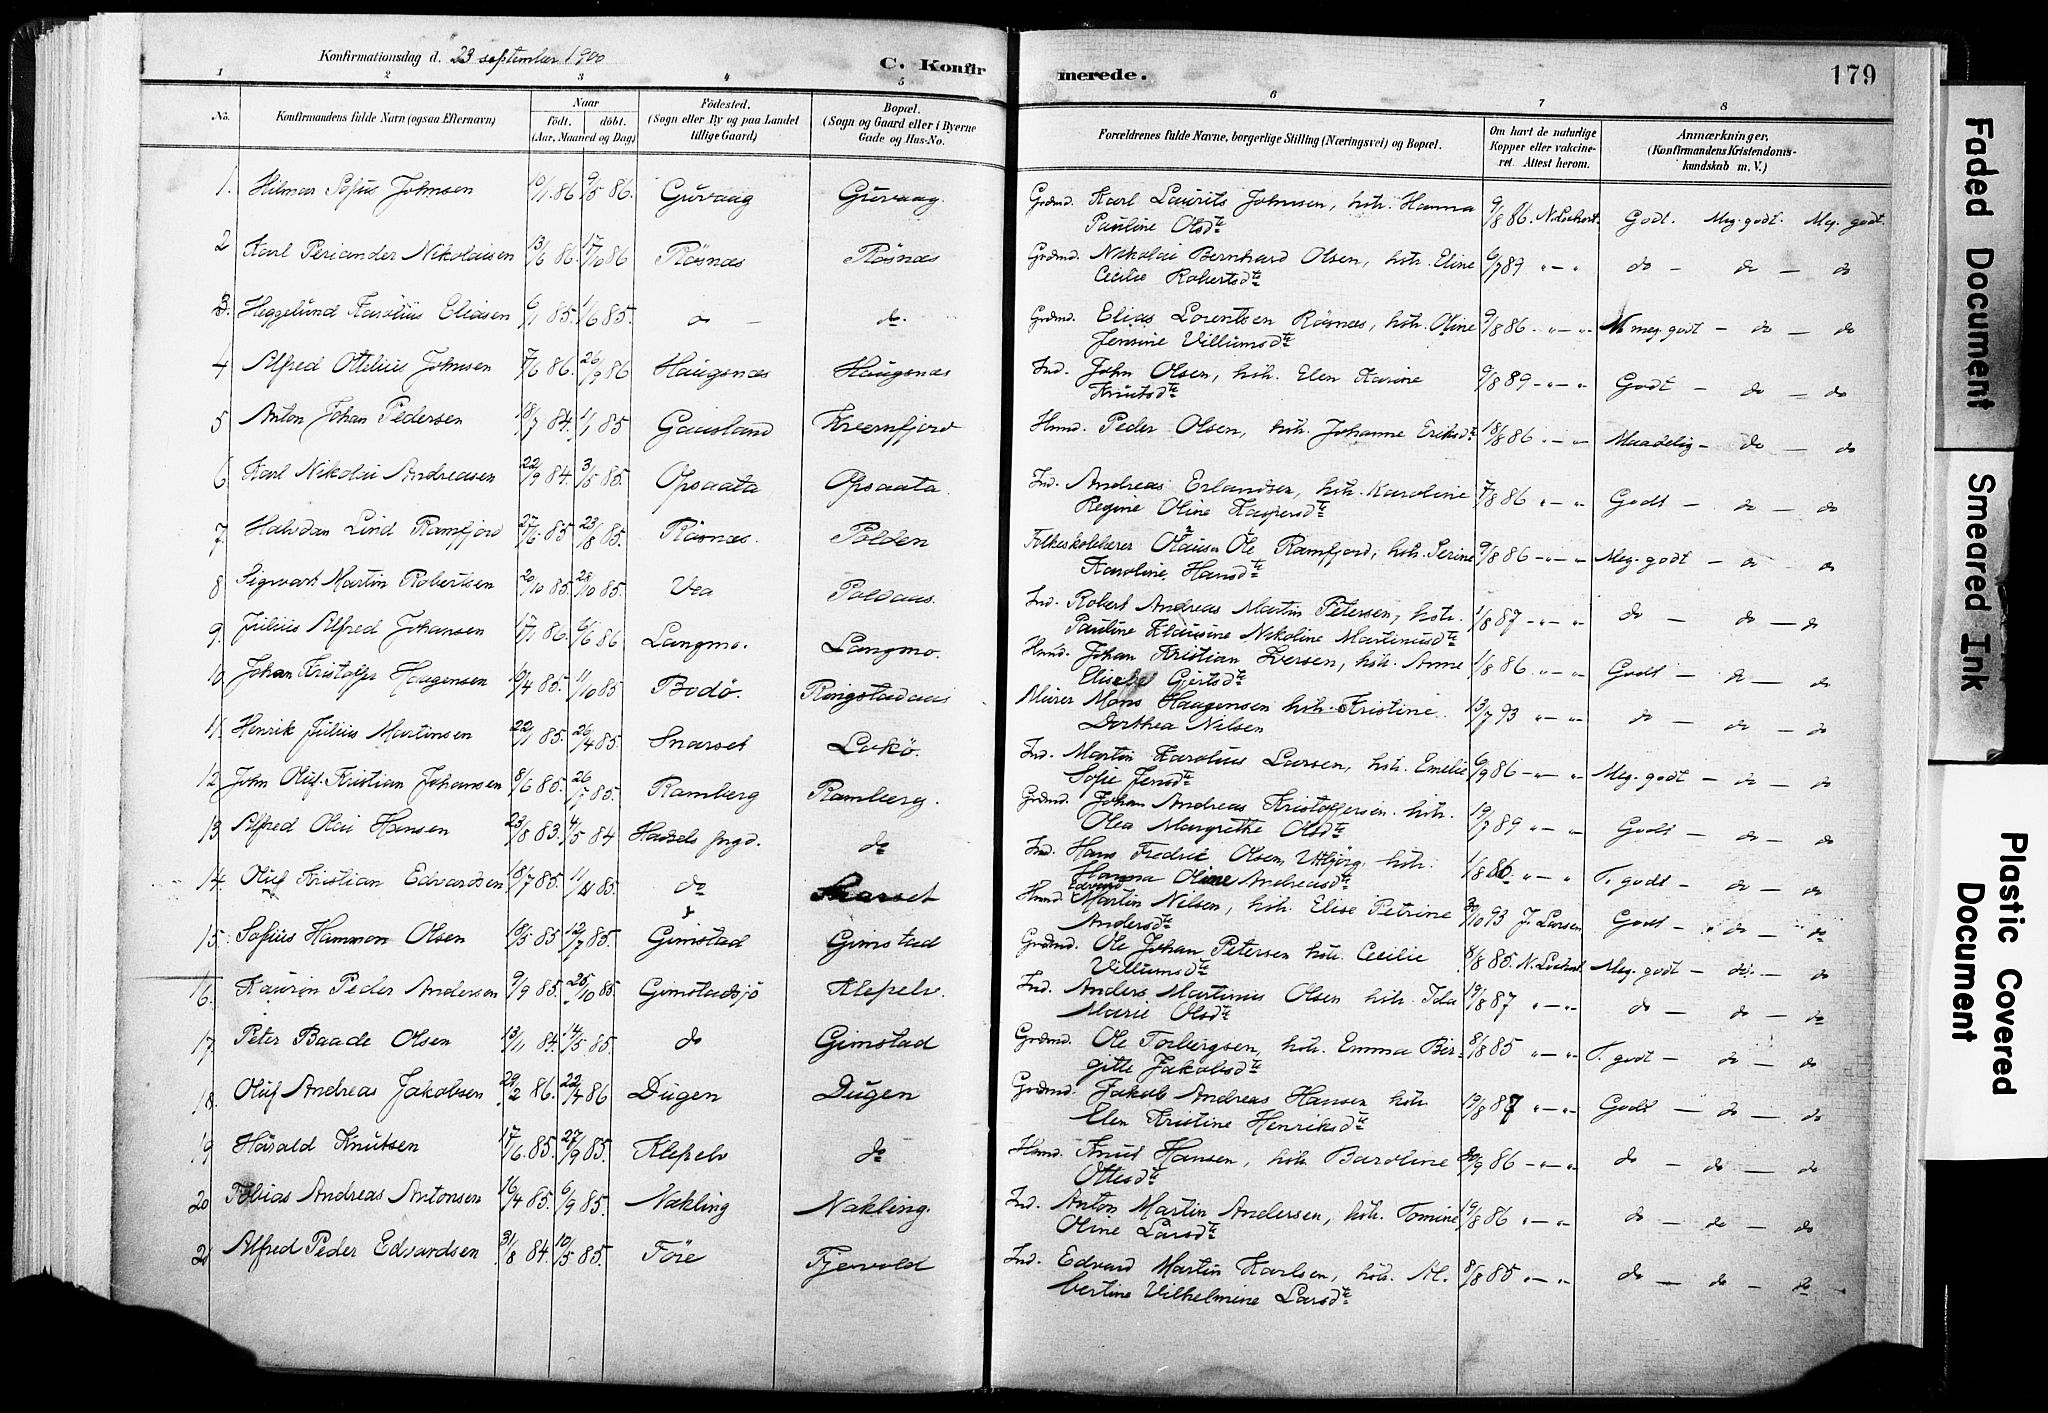 Konfirmationsdag d. 23 september 1900
C. Konfir merede. 179
1 2 3 4 5 6 7 8
No. Konfirmandens fulde Navn (ogsaa Efternavn) Naar født. døbt. (Aar, Maaned og Dag) Fødested. (Sogn eller By og paa Landet tillige Gaard) Bopæl. (Sogn og Gaard eller i Byerne Gade og Hus-No. Forældrenes fulde Navne, borgerlige Stilling (Næringsvei) og Bopæl. Om havt de naturlige Kopper eller vakcineret. Attest herom. Anmærkninger. (Konfirmandens Kristendomskundskab m. V.)
1. Hilmar Sofus Johnsen 10/1 86 9/5 86. Guvaag Guvaag. Grdmd. Karl Laurits Johnsen, hstr. Hanna 9/8 86. N. Lockert. Godt. Meg. godt. Meg. godt.
Pauline Olsdtr
2 Karl Periander Nikolaisen 13/6 86. 17/10 86 Røsnæs Røsnæs Grdmd. Nikolai Bernhard Olsen, hstr. Eline 6/7 89 " — " do — do — do
Cecilie Robertsdtr
3. Heggelund Karolius Eliasen 6/1 85. 1/6 85. do — do. Grdmd. Elias Lorentsen Røsnæs, hstr. Oline 9/8 86 - " - " meg. godt — do — do
Jensine Villumsdtr
4 Alfred Ottelius Johnsen 7/6 86. 26/9 86 Haugsnæs Haugsnæs Ind. John Olsen, hstr. Elen Karine 9/8 89 - " - " Godt — do — do
Knutsdtr
5 Anton Johan Pedersen 18/7 84. 1/1 85 Gaasland Kvernfjord Husmd. Peder Olsen, hstr. Johanne Eriksdtr 18/8 86 - " - " Maadelig — do — do
6. Karl Nikolai Andreasen 22/9 84. 3/5 85. Opsaata Opsaata. Ind. Andreas Erlandsen, hstr. Karoline 7/8 86 " — " Godt — do — do
Regine Oline Kaspersdtr
7 Halvdan Lind Ramfjord 27/6 85 23/8 85. Røsnæs. Polden Folkeskolelærer Olaus Ole Ramfjord, hstr. Serine 9/8 86 - " - " Meg. godt — do do
Karoline Hansdtr
8 Sigvart Martin Robertsen 20/10 85. 28/10 85. Vea Poldaas. Ind. Robert Andreas Martin Petersen, hstr. 1/8 87 - " - " do — do — do
Pauline Klausine Nikoline Martinusdtr
9. Julius Alfred Johansen 17/1 86. 6/6 86 Langmo. Langmo. Husmd. Johan Kristian Iversen, hstr. Anne 1/8 86 " — " Godt — do — do
Gjertsdtr
10 Johan Kristoffer Haugensen 19/4 85. 11/10 85 Bodø. Ringstadaas Murer Mons Haugensen hstr. Kristine 13/7 93 " — " do — do — do
Dorthea Nilsen
11. Henrik Julius Martinsen 22/1 85. 26/4 85. Snarset Lakø. Ind. Martin Karolius Larsen, hstr. Emelie 6/9 86 - " - " Meg. godt — do — do
Sofie Jensdtr
12 John Oluf Kristian Johansen 8/6 85. 26/7 85. Ramberg Ramberg. Grdmd. Johan Andreas Kristoffersen. hstr. 19/7 89 " — " Godt — do — do
Olea Margrethe Olsdtr
13 Alfred Olai Hansen 23/8 83. 4/5 84 Hadsels prgd. do Ind. Hans Fredrik Olsen, hstr. 1/8 86. " — " T. godt — do — do
Hanna Oline Andreasdtr
14. Oluf Kristian Edvardsen 18/7 85. 11/ 85. do Skarset Husmd. Edvard Martin Nilsen, hstr. Elise Petrine 30/10 93 J. Larsen Godt — do — do
Andersdtr
15. Sofus Hammon Olsen 19/5 85 12/7 85. Gimstad Gimstad Grdmd. Ole Johan Petersen hstr. Cecilie 8/8 85. N. Lockert Meg. godt — do. — do
Villumsdtr
16. Laurin Peder Andersen 9/9 85. 25/10 85. Gimstadsjø Klepelv. Ind. Anders Martinus Olsen hstr. Ida 19/8 87 " — " do — do — do
Marie Olsdtr
17. Peter Baade Olsen 13/11 84. 14/5 85. do Gimstad Grdmd. Ole Torbergsen, hstr. Emma Bir- 8/8 85 " — " T. godt — do — do
gitte Jakobsdtr
18. Oluf Andreas Jakobsen 29/2 86. 22/4 86 Dugen Dugen Grdmd. Jakob Andreas Hansen hstr. 19/8 87 " — " Godt — do — do
Elen Kristine Henriksdtr
19 Harald Knutsen 17/6. 85. 27/9 85. Klepelv do Husmd. Knud Hansen, hstr. Baroline 20/9 86 - " - " do — do — do
Ottesdtr
20 Tobias Andreas Antonsen 16/4 85. 6/9 85. Nakling Nakling. Ind. Anton Martin Andersen, hstr. Tomine 19/8 86 " — " do — do — do
Oline Larsdtr
21 Alfred Peder Edvardsen 31/8 84. 10/5 85. Føre Fjervold Ind. Edvard Martin Karlsen, hstr. Al- 8/8 85 " — " do — do — do
bertine Vilhelmine Larsdtr
Faded Document
Smeared Ink
Plastic Covered
Document